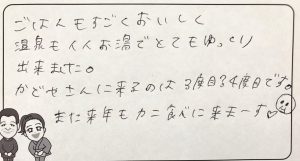 ごはんもすごくおいしく
温泉もイイお湯でとてもゆっくり
出来ました。
かどやさんに来るのは3度目る4度目です。
また来年もカニ食べに来まーす♡